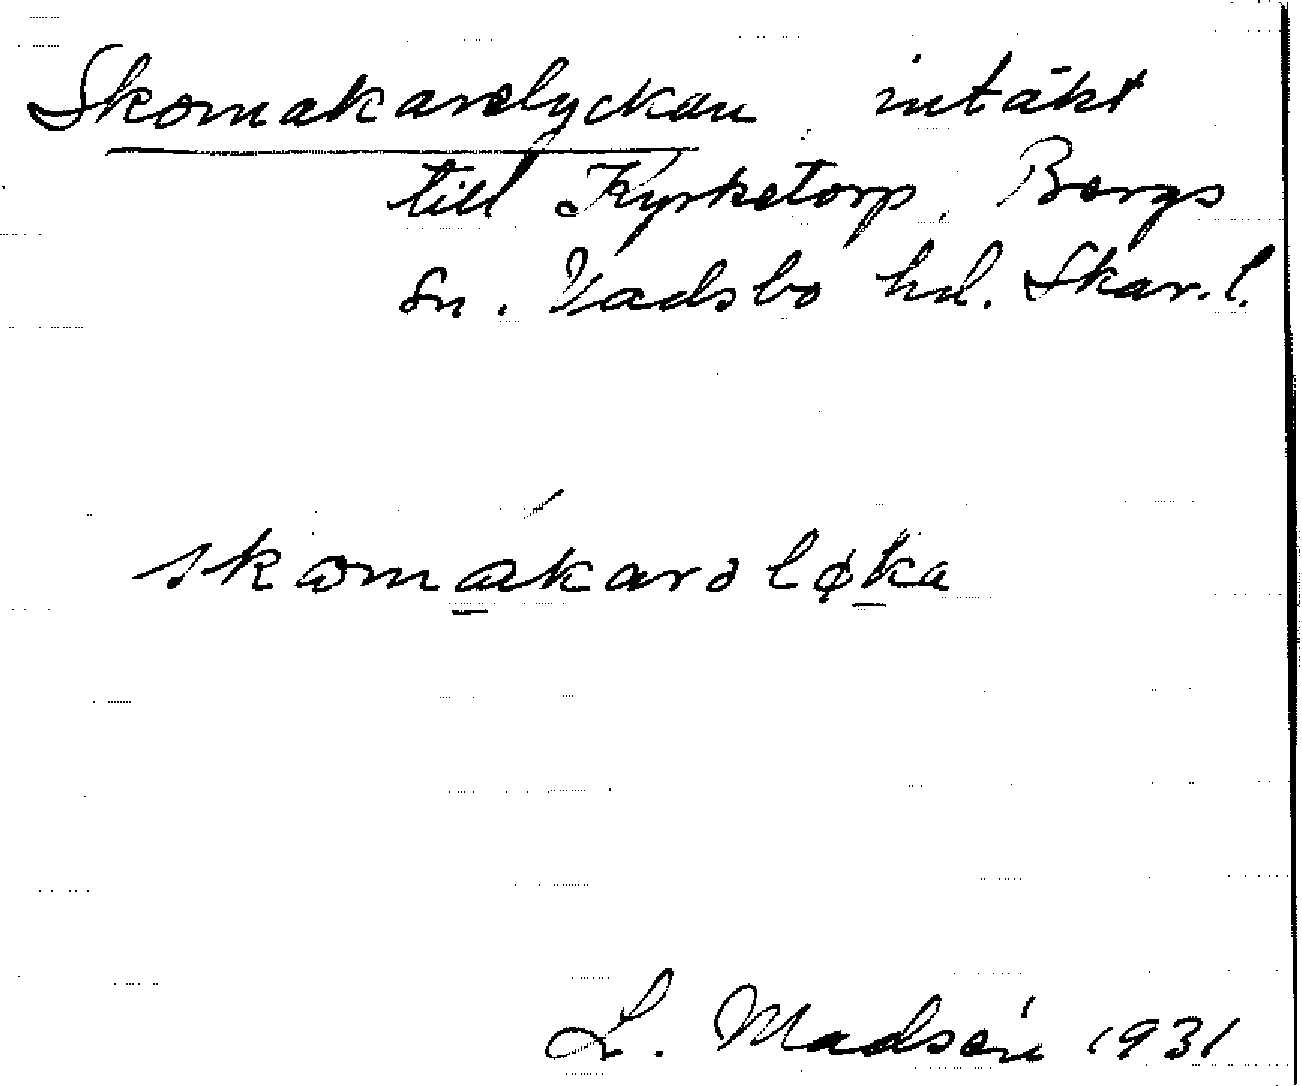 Skomakarelyckan, intäkt
till Kyrketorp, Bergs
sn. Vadsbo hd. Skar. l.
skomákarəløka
L. Madsén 1931